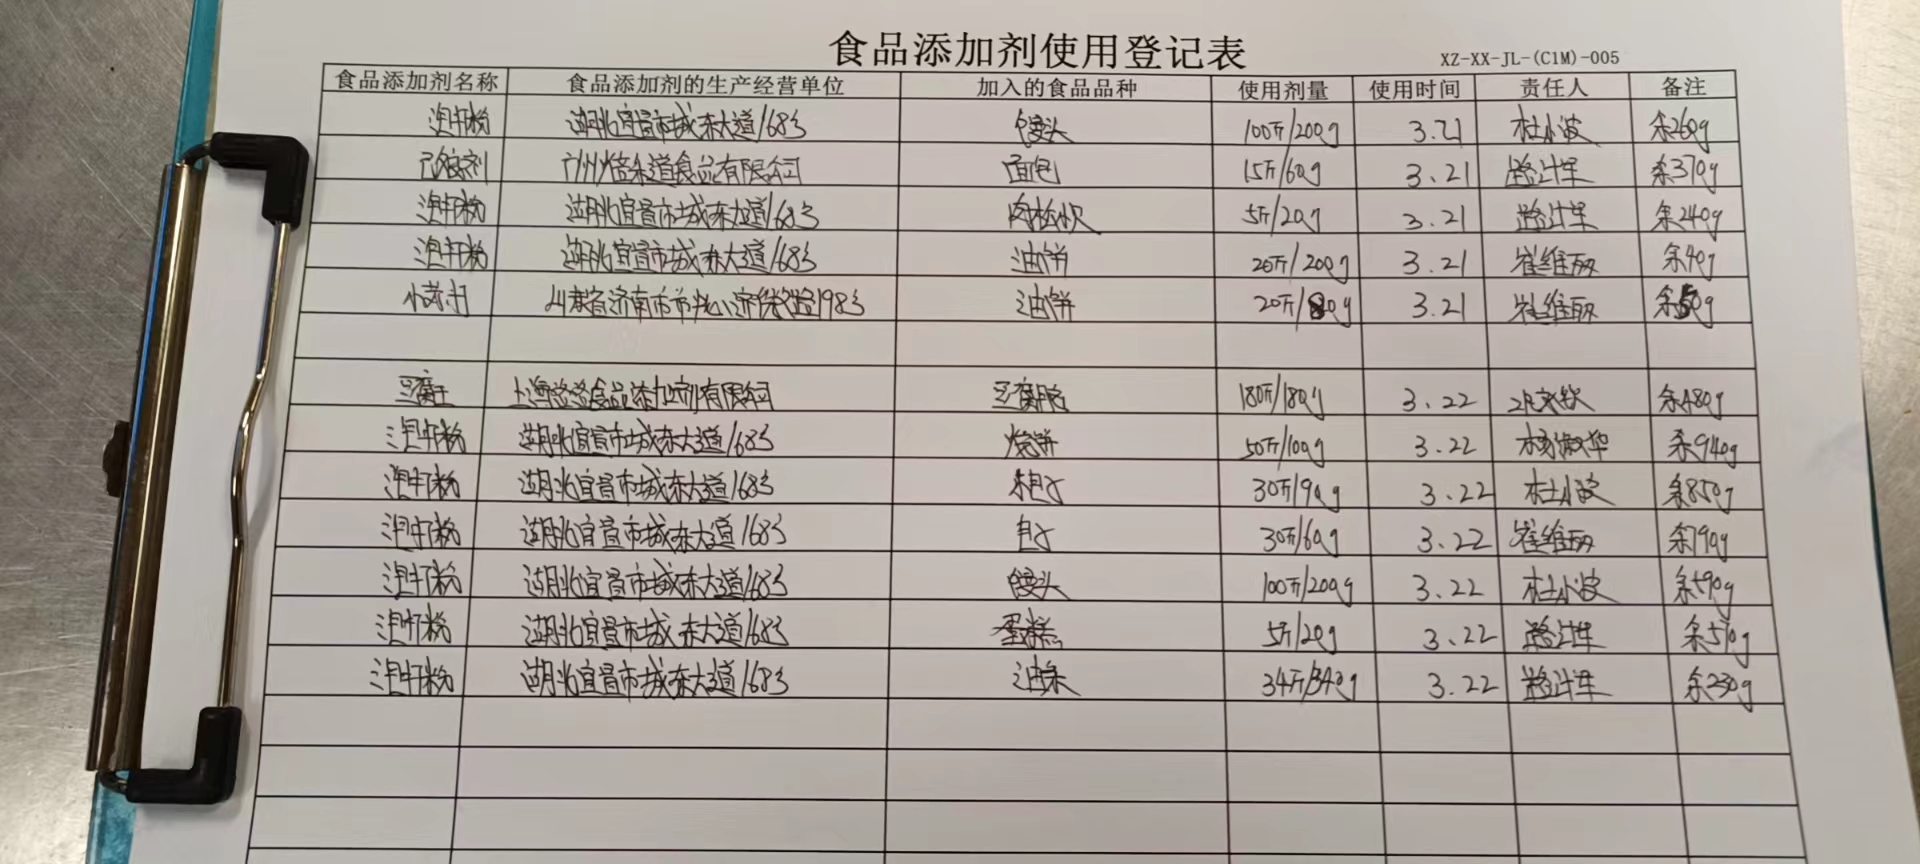 食品添加剂使用登记表
XZ-XX-JL-(C1M)-005
食品添加剂名称 食品添加剂的生产经营单位 加入的食品品种 使用剂量 使用时间 责任人 备注
泡打粉 湖北宜昌市城东大道168号 馒头 100斤/200g 3.21 杜小波 余260g
广州 食品有限公司 面包 15斤/60g 3.21 余370g
泡打粉 湖北宜昌市城东大道168号 5斤/20g 3.21 余240g
泡打粉 湖北宜昌市城东大道168号 油饼 20斤/200g 3.21 崔维丽 余40g
小苏打 山东省济南市市中 198号 油饼 20斤/ 3.21 崔维丽 余50g
豆腐王 上海 食品添加剂有限公司 豆腐脑 180斤/180g 3.22 余480g
泡打粉 湖北宜昌市城东大道168号 烧饼 50斤/100g 3.22 杨淑华 余940g
泡打粉 湖北宜昌市城东大道168号 30斤/90g 3.22 杜小波 余850g
泡打粉 湖北宜昌市城东大道168号 30斤/60g 3.22 崔维丽 余790g
泡打粉 湖北宜昌市城东大道168号 馒头 100斤/200g 3.22 杜小波 余590g
泡打粉 湖北宜昌市城东大道168号 蛋糕 5斤/20g 3.22 余570g
泡打粉 湖北宜昌市城东大道168号 油条 34斤/340g 3.22 余230g